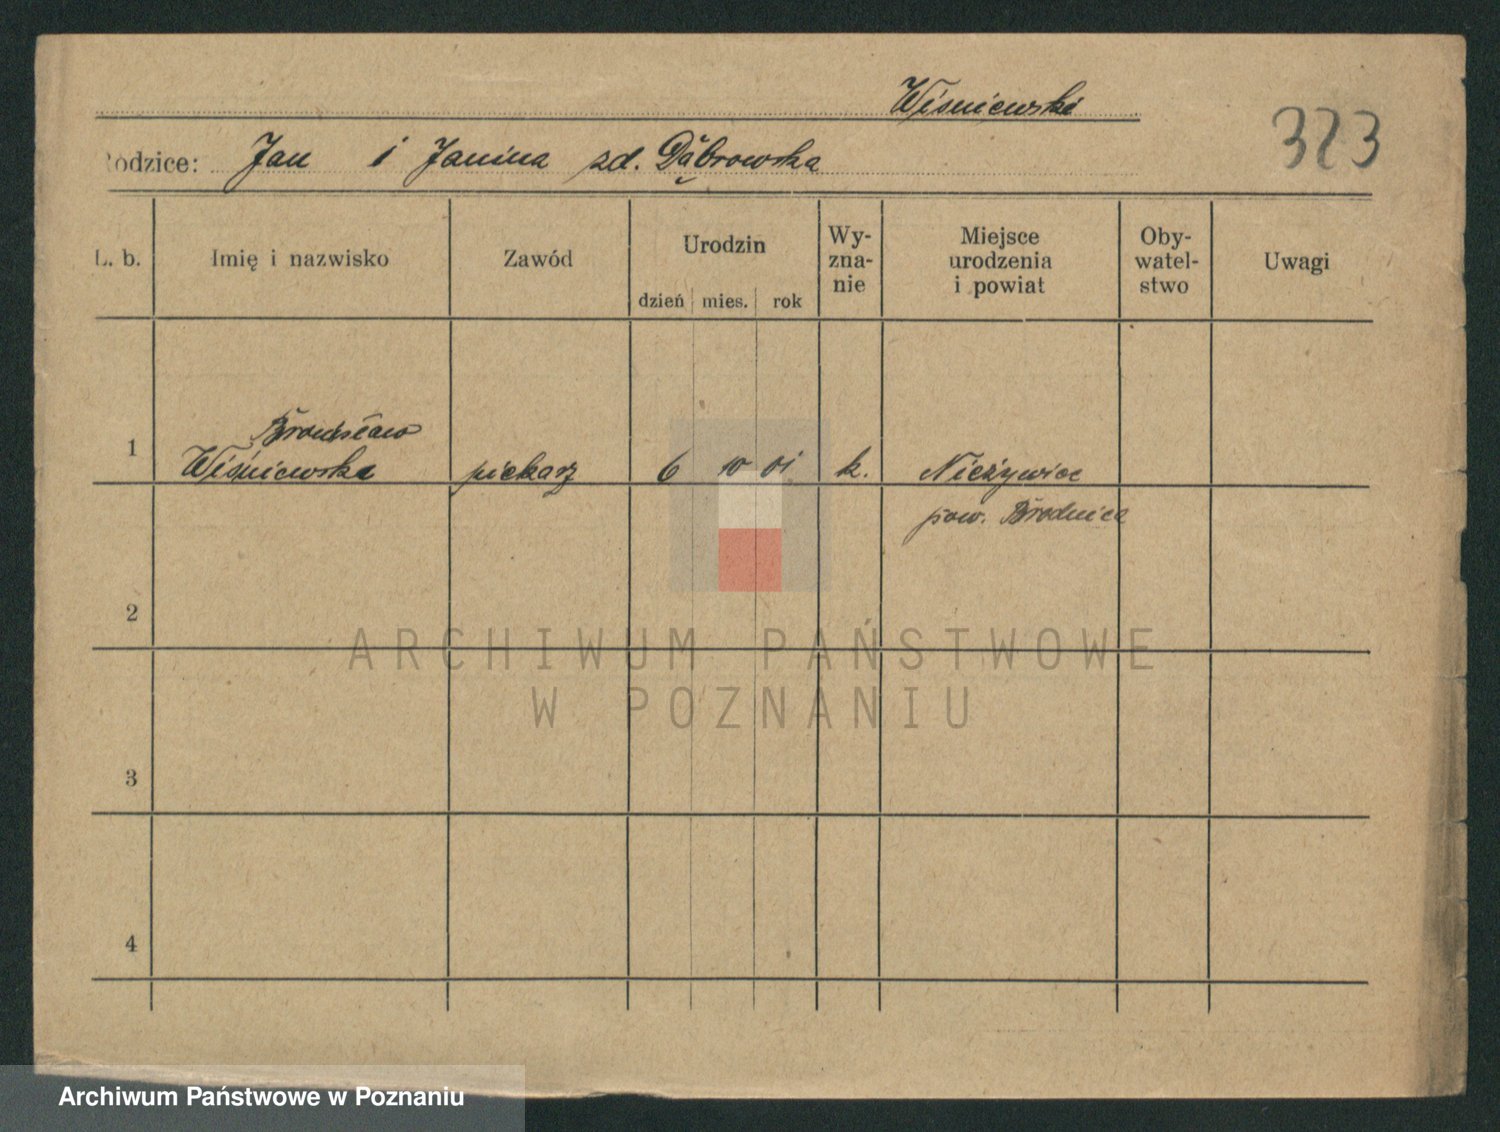 Wiśniewski
323
Rodzice: Jan i Janina zd. Dąbrowska
L. b.
Imię i nazwisko
Zawód
Urodzin
dzień mies. rok
Wy-
zna-
nie
Miejsce
urodzenia
i powiat
Oby-
watel-
stwo
Uwagi
1
Bronisław
Wiśniewski
piekarz
6 10 01
k.
Nieżywiec
pow. Brodnica
2
3
4
ARCHIWUM PAŃSTWOWE
W POZNANIU
Archiwum Państwowe w Poznaniu